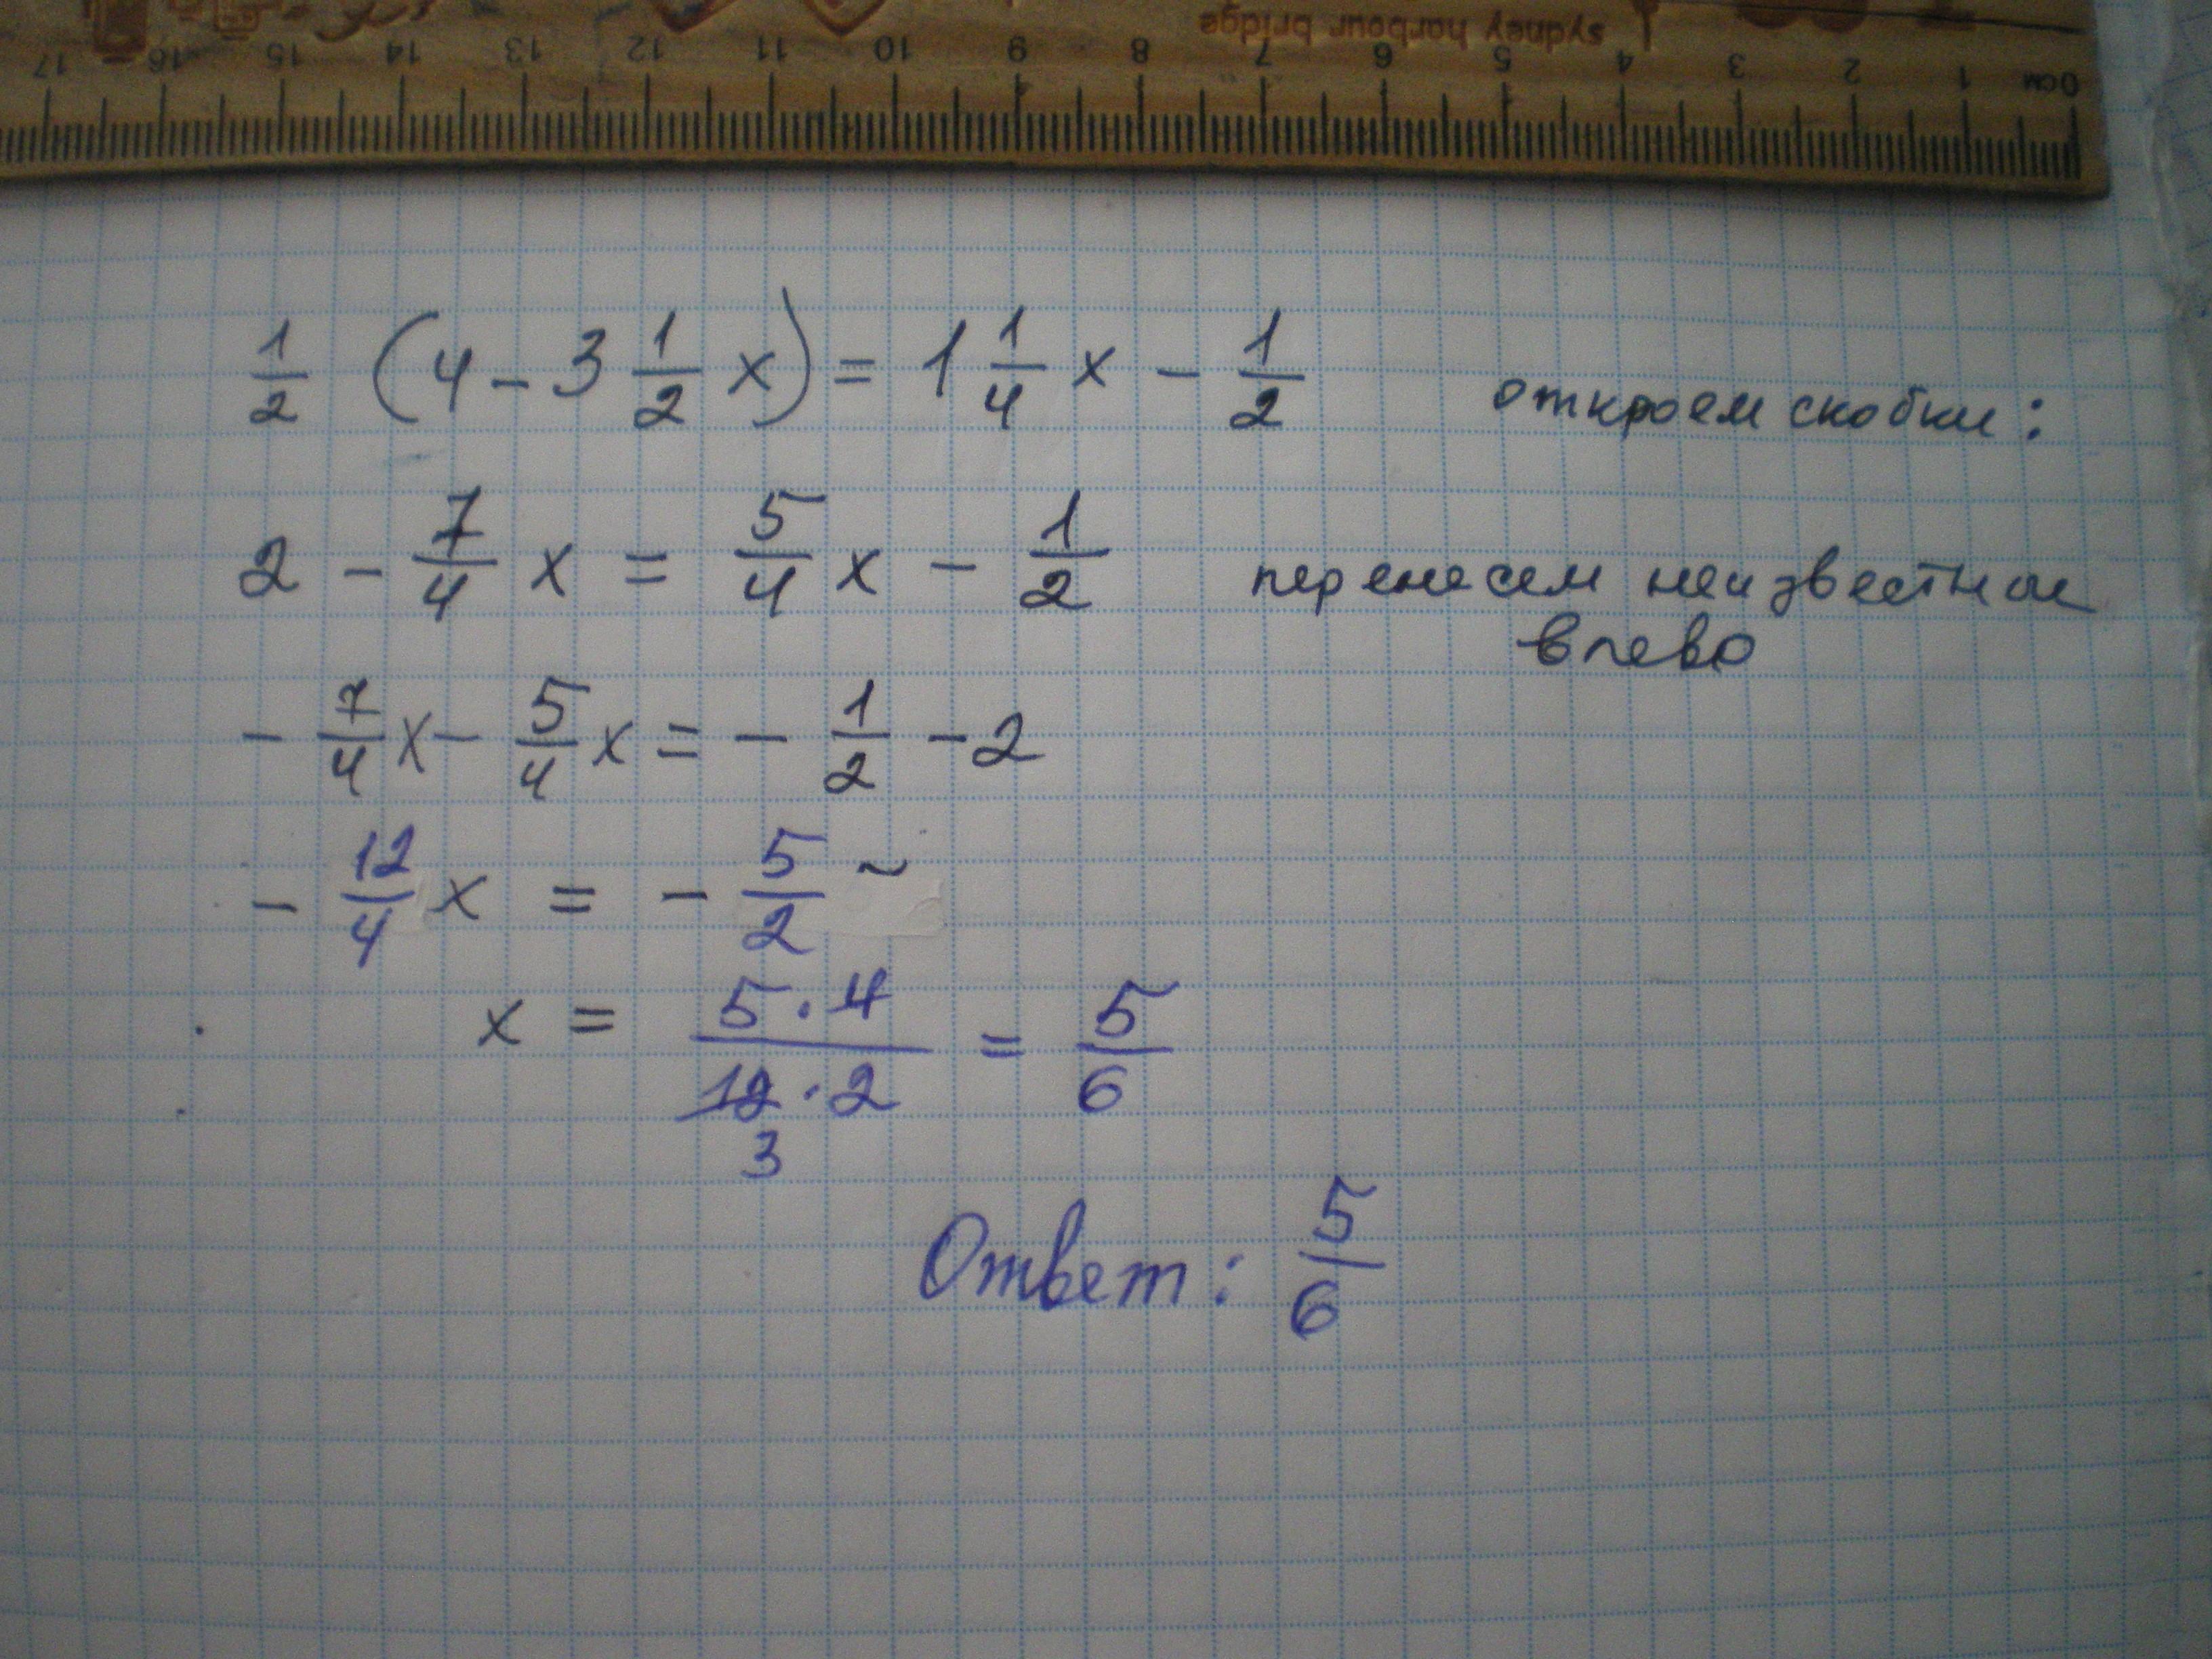 sydney harbour bridge
0см 1 2 3 4 5 6 7 8 9 10 11 12 13 14 15 16 17
1/2 (4 - 3 1/2 x) = 1 1/4 x - 1/2 откроем скобки:
2 - 7/4 x = 5/4 x - 1/2 перенесем неизвестное
влево
- 7/4 x - 5/4 x = - 1/2 - 2
- 12/4 x = - 5/2 ~
x = 5·4 / 12·2 = 5/6
3
Ответ: 5/6